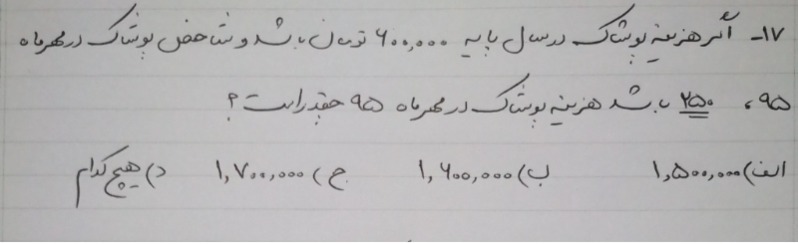 ۱۷- اگر هزینه پوشاک در سال پایه ۶۰۰,۰۰۰ تومان باشد و شاخص پوشاک در مهرماه
۹۵، ۲۵۰ باشد هزینه پوشاک در مهرماه ۹۵ چقدر است؟
الف) ۱,۵۰۰,۰۰۰ ب) ۱,۶۰۰,۰۰۰ ج) ۱,۷۰۰,۰۰۰ د) هیچ کدام